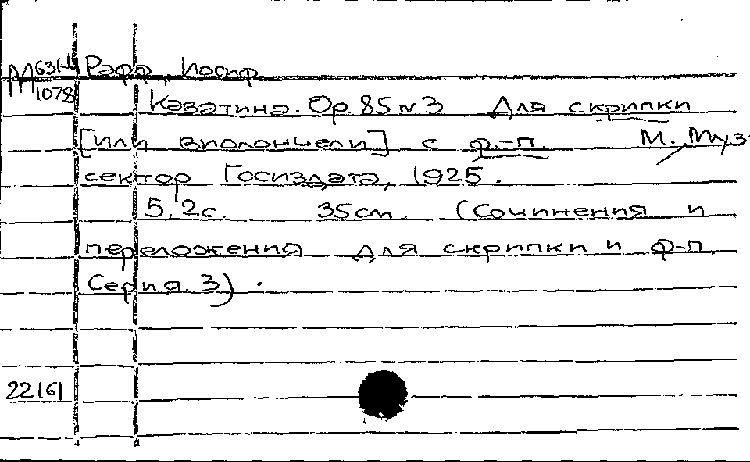 М 631/1078 Рафф, Иосиф
Каватина. Op. 85 N3 Для скрипки
[или виолончели] с ф.-п. М. Муз
сектор Госиздата, 1925.
5,2с. 35см. (Сочинения и
переложения для скрипки и ф-п
Серия 3).
22161